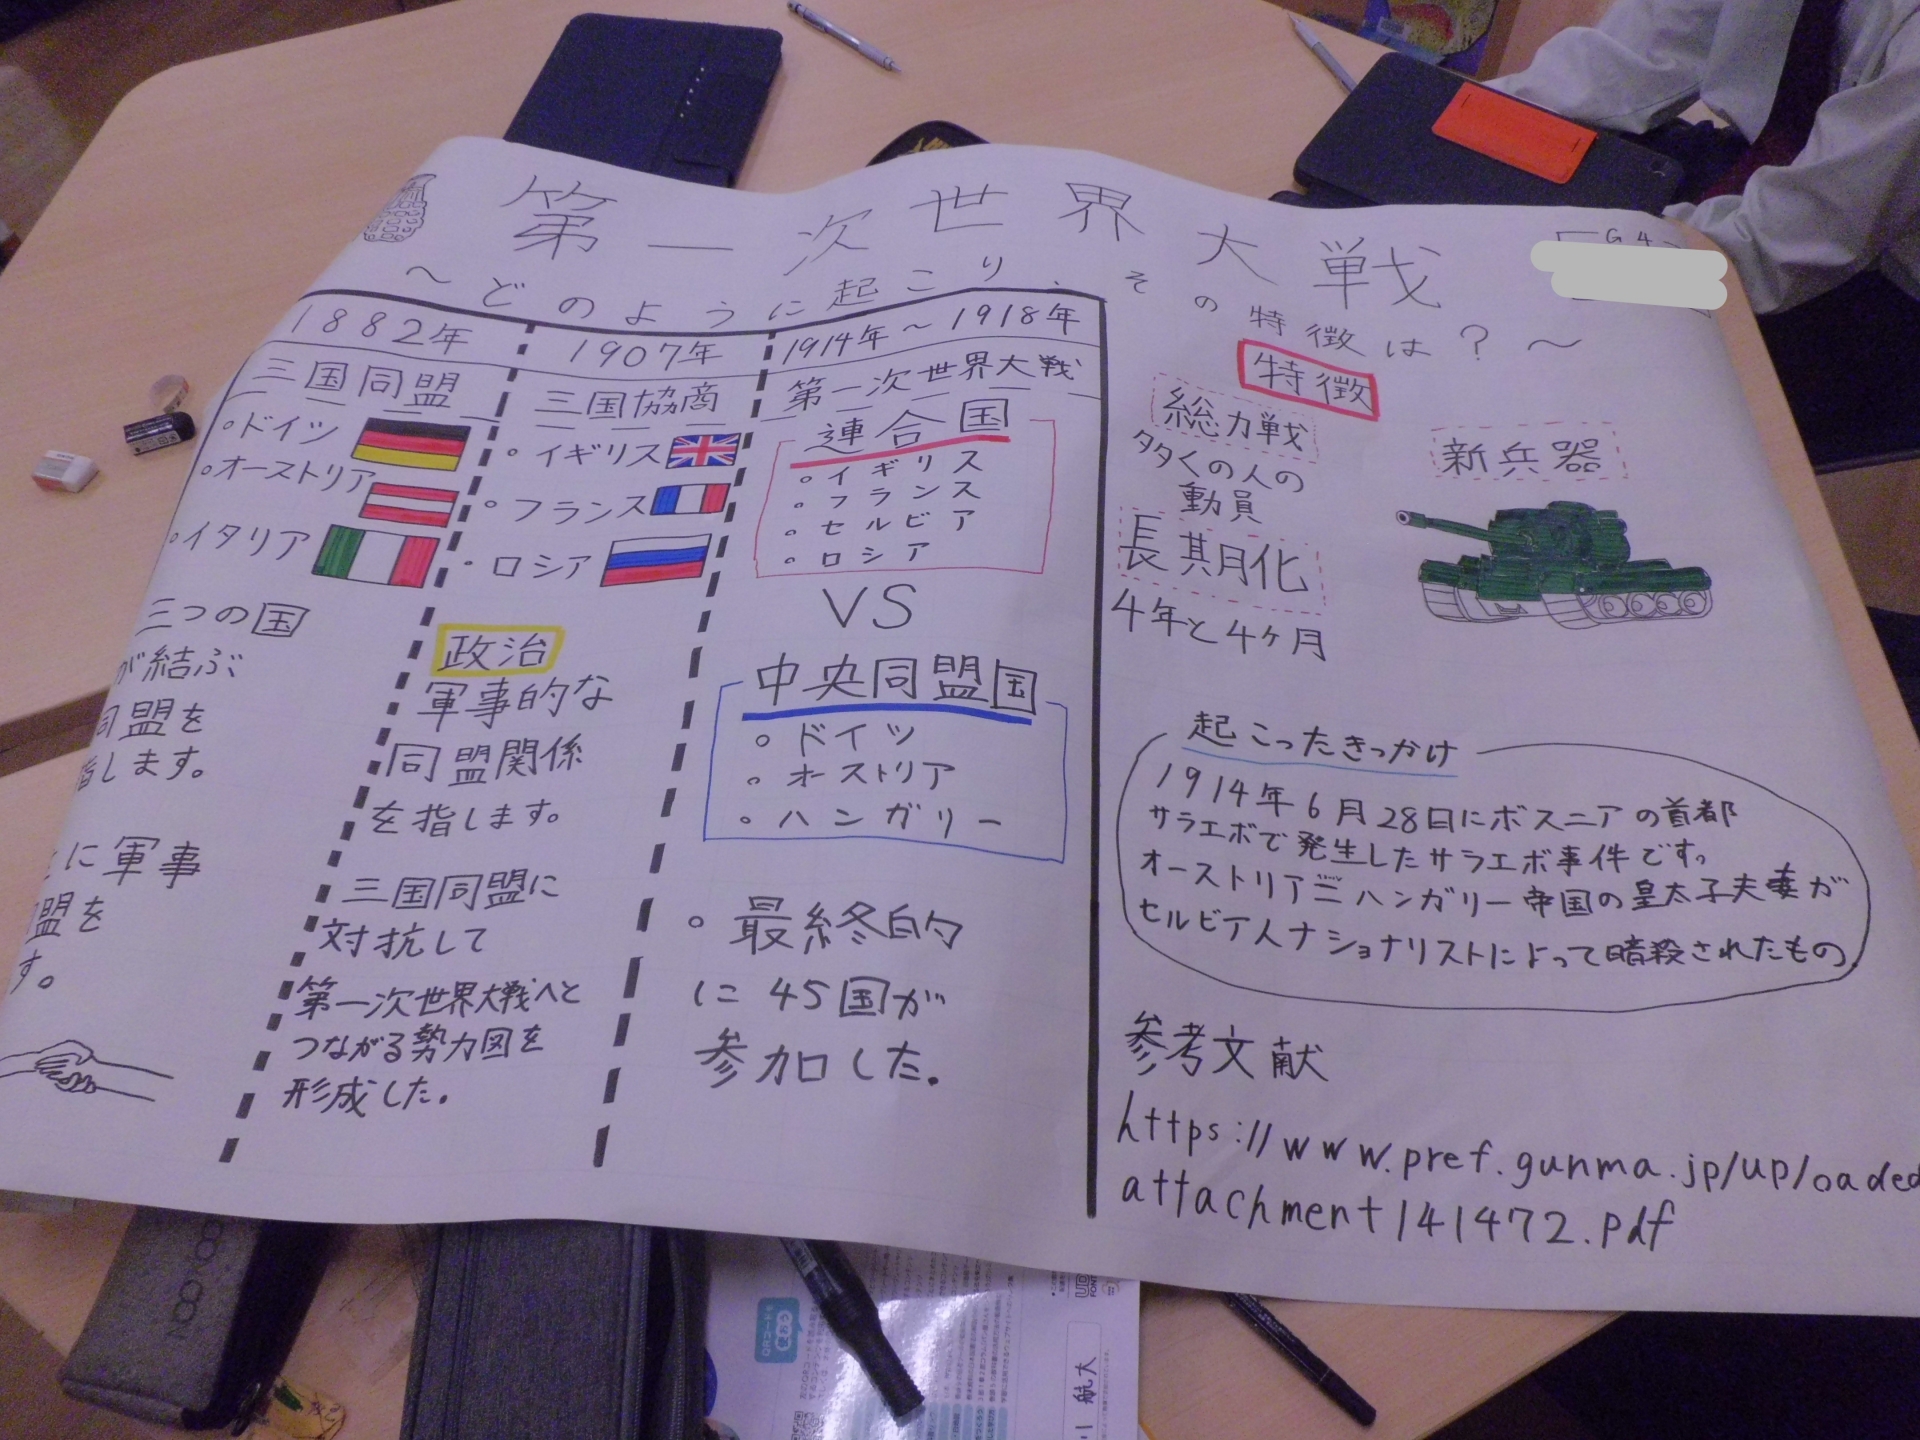 第一次世界大戦
G4
～どのように起こり、その特徴は？～
1882年
三国同盟
○ドイツ
○オーストリア
○イタリア
三つの国
が結ぶ
同盟を
指します。
に軍事
盟を
す。
1907年
三国協商
○イギリス
○フランス
○ロシア
政治
軍事的な
同盟関係
を指します。
三国同盟に
対抗して
第一次世界大戦へと
つながる勢力図を
形成した.
1914年～1918年
第一次世界大戦
連合国
○イギリス
○フランス
○セルビア
○ロシア
VS
中央同盟国
○ドイツ
○オーストリア
○ハンガリー
○最終的
に45国が
参加した.
特徴
総力戦
多くの人の
動員
長期化
4年と4ヶ月
新兵器
起こったきっかけ
1914年6月28日にボスニアの首都
サラエボで発生したサラエボ事件です。
オーストリア＝ハンガリー帝国の皇太子夫妻が
セルビア人ナショナリストによって暗殺されたもの
参考文献
https://www.pref.gunma.jp/uploaded
attachment141472.pdf
NOO
航大